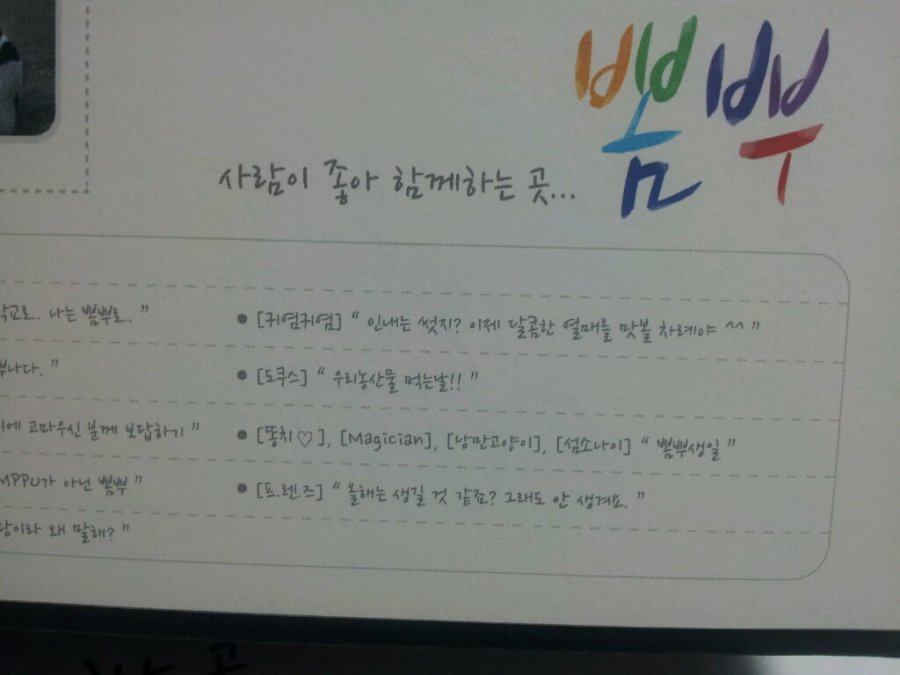 뽐뿌
사람이 좋아 함께하는 곳...
나는 뽐뿌로.. "
● [귀염귀염] " 인내는 썼지? 이제 달콤한 열매를 맛볼 차례야 ^^ "
뿌나다. "
● [도쿠스] " 우리농산물 먹는날!! "
에 고마우신 분께 보답하기 "
● [똥치♡], [Magician], [낭만고양이], [섬소나이] " 뽐뿌생일 "
MPPU가 아닌 뽐뿌 "
● [프.렌.즈] " 올해는 생길 것 같죠? 그래도 안 생겨요. "
당이라 왜 말해? "